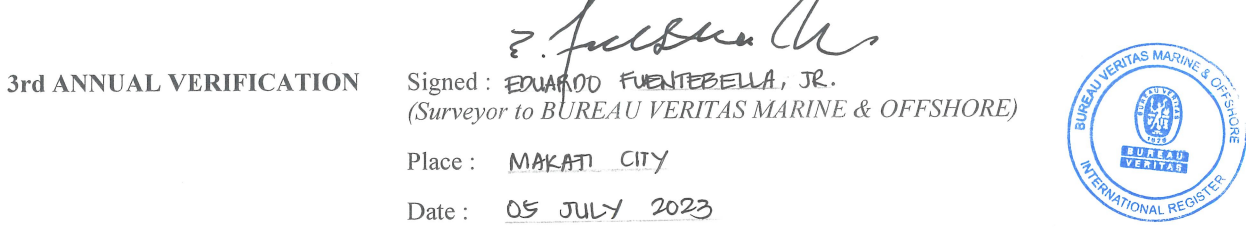 3rd ANNUAL VERIFICATION
Signed : EDUARDO FUENTEBELLA, JR.
(Surveyor to BUREAU VERITAS MARINE & OFFSHORE)
Place : MAKATI CITY
Date : 05 JULY 2023
BUREAU VERITAS MARINE & OFFSHORE
INTERNATIONAL REGISTER
BUREAU VERITAS
1828
BUREAU
VERITAS